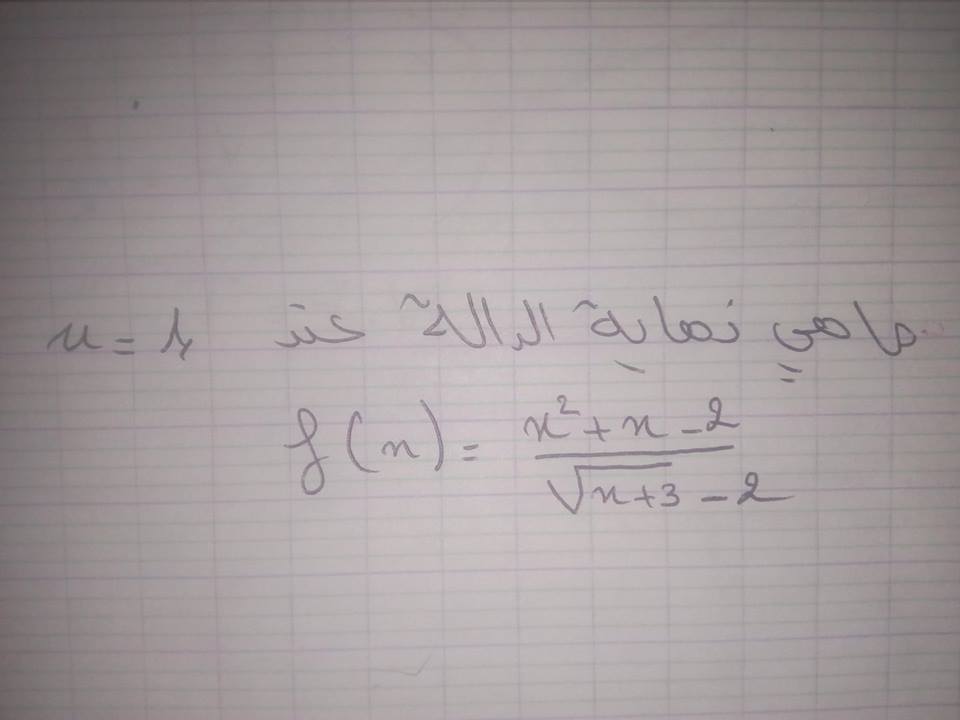 ما هي نهاية الدالة عند x = 1
f(x) = \frac{x²+x-2}{\sqrt{x+3}-2}